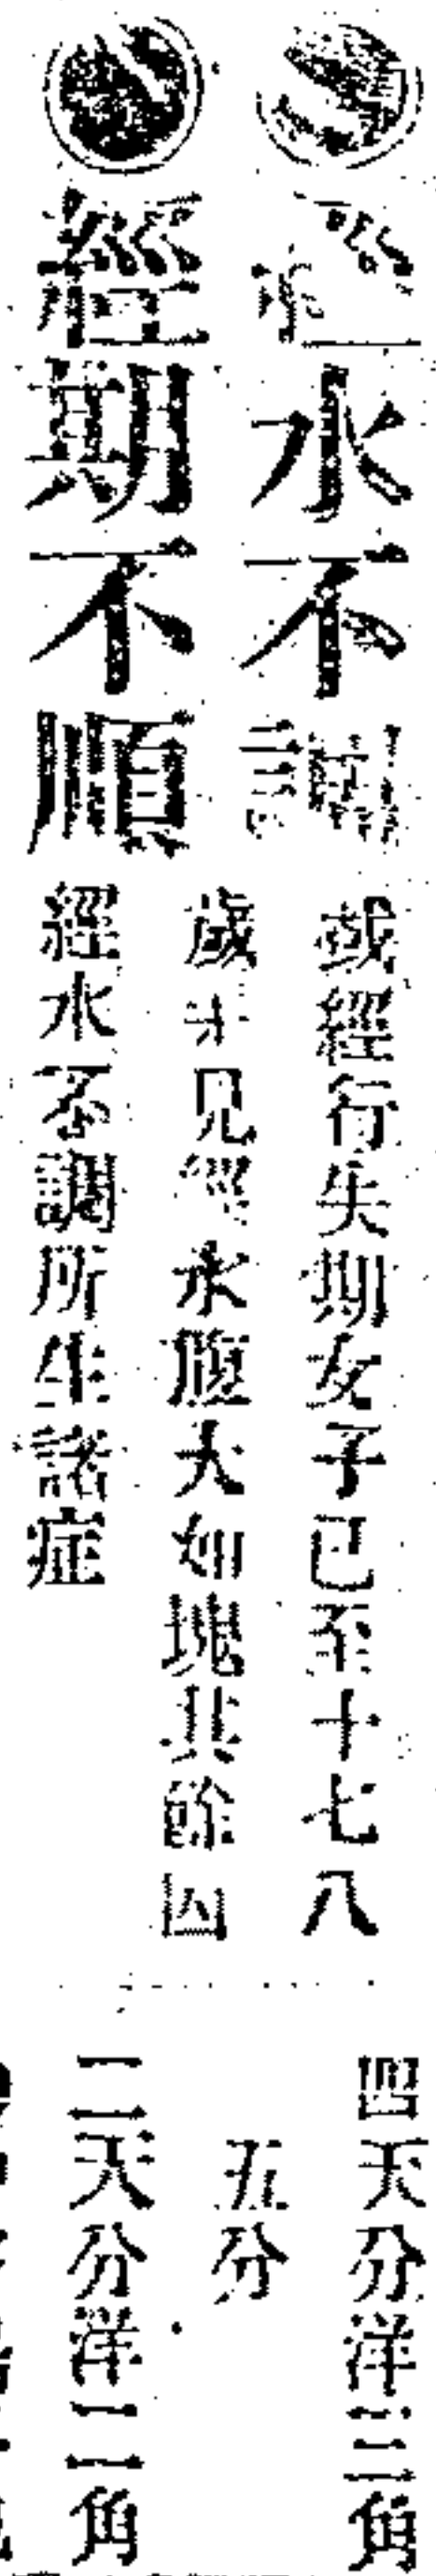 經水不調
經期不順
或經行失期女子已至十七八
歲未見經水腹大如塊其餘因
經水不調所生諸症
四天分洋三角
五分
二天分洋二角